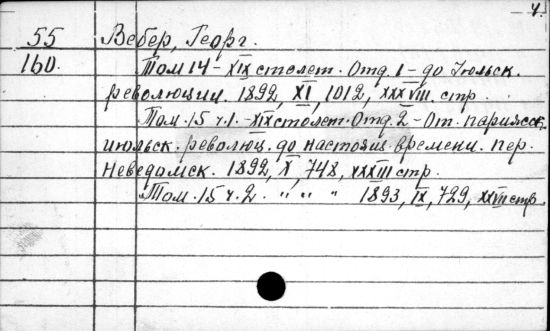 – 4.
55 Вебер, Георг.
160. Том 14 – XIX столет. Отд. 1 – до Июльск.
революции. 1892, XI, 1012, XXXVIII стр.
Том. 15 ч. 1. – XIX столет. Отд. 2 – От. парижск.
июльск. революц. до настоящ. времени. пер.
Неведомск. 1892, X, 748, XXXIII стр.
Том. 15 ч. 2. " " " 1893, IX, 729, XXVII стр.